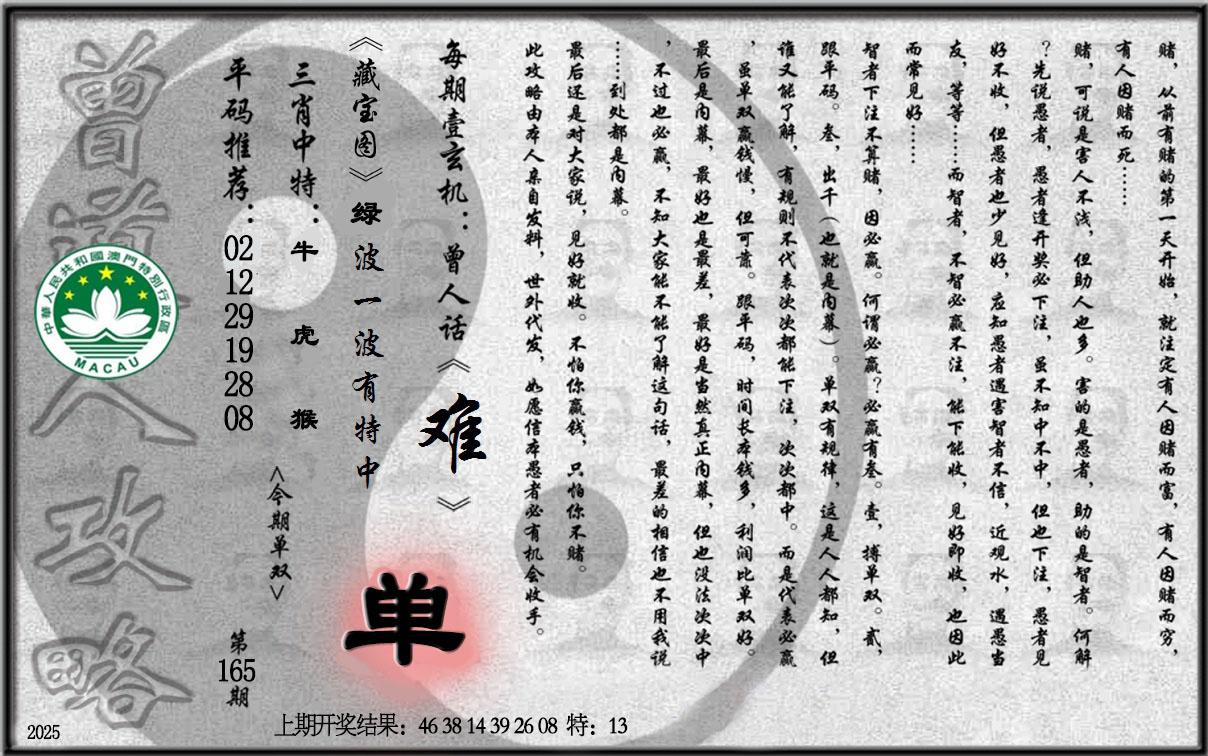 赌，从前有赌的第一天开始，就注定有人因赌而富，有人因赌而穷，
有人因赌而死……
赌，可说是害人不浅，但助人也多。害的是愚者，助的是智者。何解
？先说愚者，愚者逢开奖必下注，虽不知中不中，但也下注，愚者见
好不收，但愚者也少见好，应知愚者遇害智者不信，近观水，遇愚当
友，等等……而智者，不智必赢不注，能下能收，见好即收，也因此
而常见好……
智者下注不算赌，因必赢。何谓必赢？必赢有叁。壹，搏单双。贰，
跟平码。叁，出千（也就是内幕）。单双有规律，这是人人都知，但
谁又能了解，有规则不代表次次都能下注，次次都中。而是代表必赢
，虽单双赢钱慢，但可靠。跟平码，时间长本钱多，利润比单双好。
最后是内幕，最好也是最差，最好是当然真正内幕，但也没法次次中
，不过也必赢，不知大家能不能了解这句话，最差的相信也不用我说
……到处都是内幕。
最后还是对大家说，见好就收。不怕你赢钱，只怕你不赌。
此攻略由本人亲自发料，世外代发，如愿信本愚者必有机会收手。
每期壹玄机：曾人话《难》
《藏宝图》绿波一波有特中
三肖中特：牛虎猴
平码推荐：02 12 29 19 28 08
<今期单双>
单
第165期
曾道人攻略
中華人民共和國澳門特別行政區
MACAU
2025
上期开奖结果：46 38 14 39 26 08 特：13